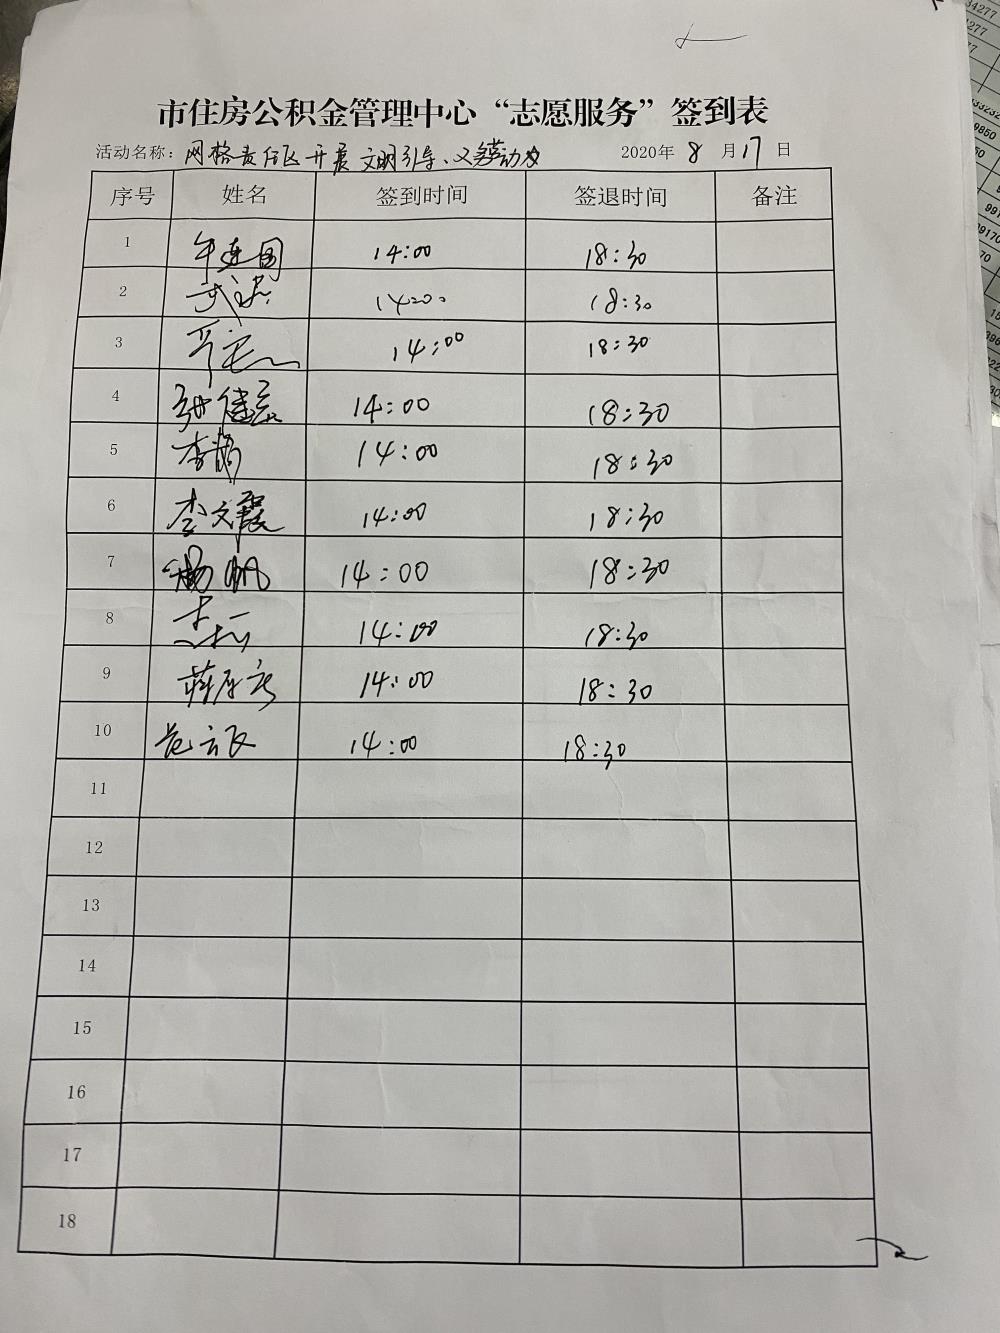 市住房公积金管理中心“志愿服务”签到表
活动名称：网格责任区开展文明引导、义务劳动 2020年8月17日
序号 姓名 签到时间 签退时间 备注
1 牛连国 14:00 18:30
2 14:00 18:30
3 14:00 18:30
4 14:00 18:30
5 李 14:00 18:30
6 李文霞 14:00 18:30
7 杨帆 14:00 18:30
8 14:00 18:30
9 蒋 14:00 18:30
10 范云飞 14:00 18:30
11
12
13
14
15
16
17
18